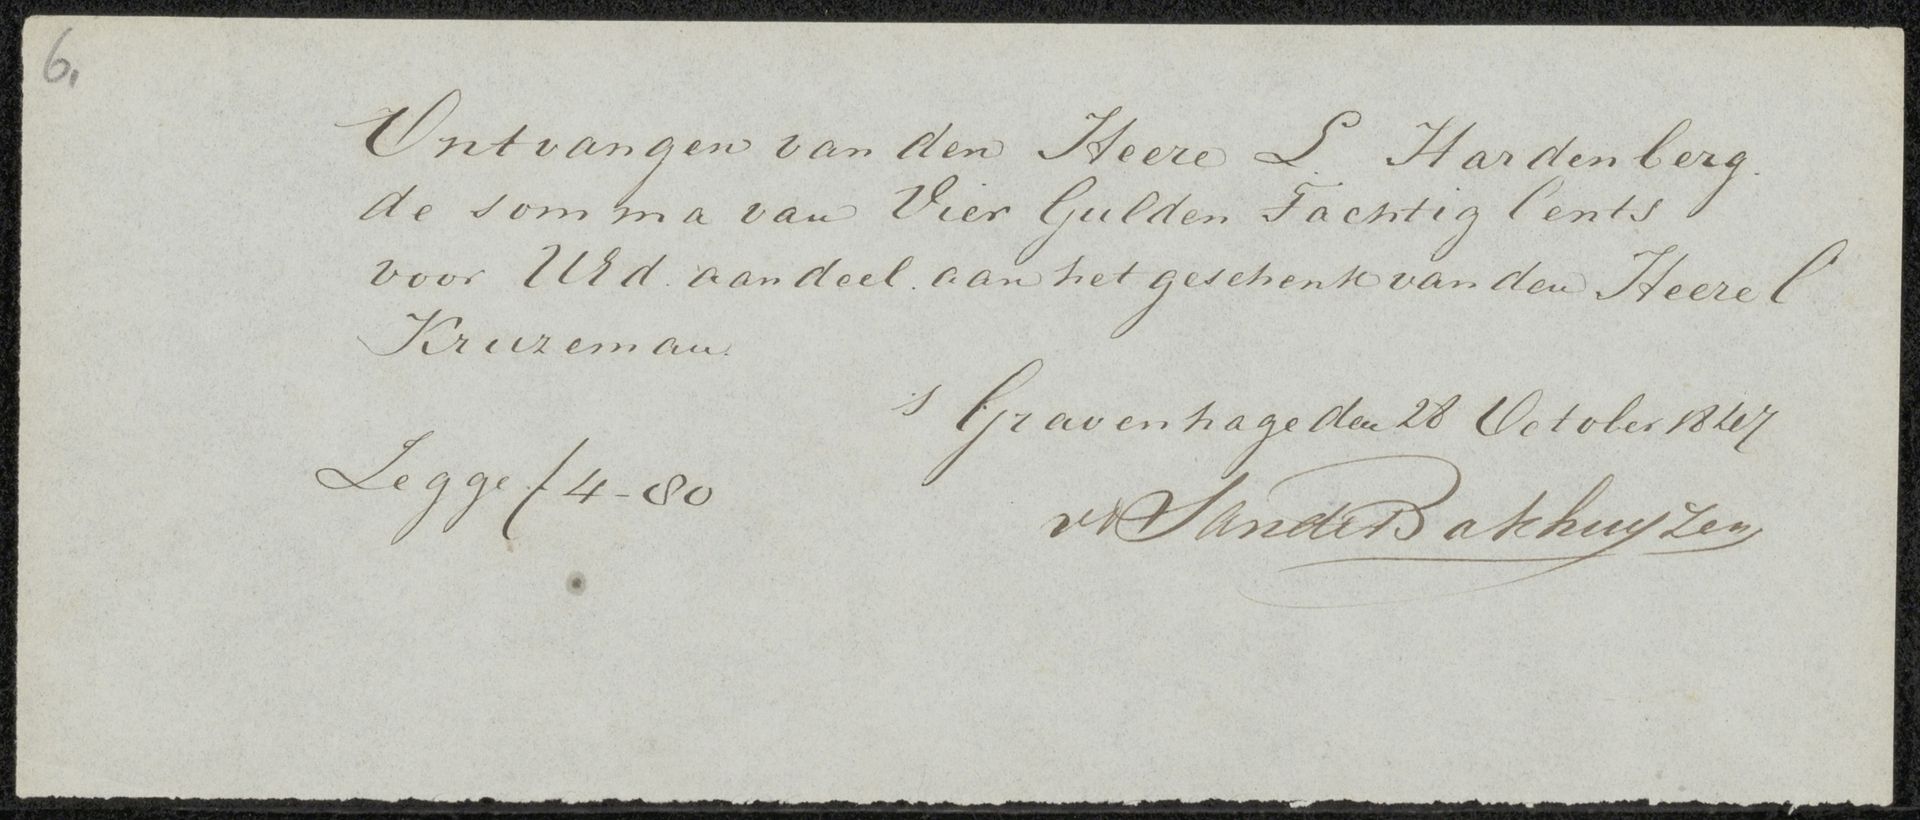 6.
Ontvangen van den Heere L. Hardenberg.
de somma van Vier Gulden Tachtig Cents
voor UEd. aandeel aan het geschenk van den Heere C
Kruzeman.
s Gravenhage den 28 October 1847
Zegge f 4-80
vd Sande Bakhuyzen